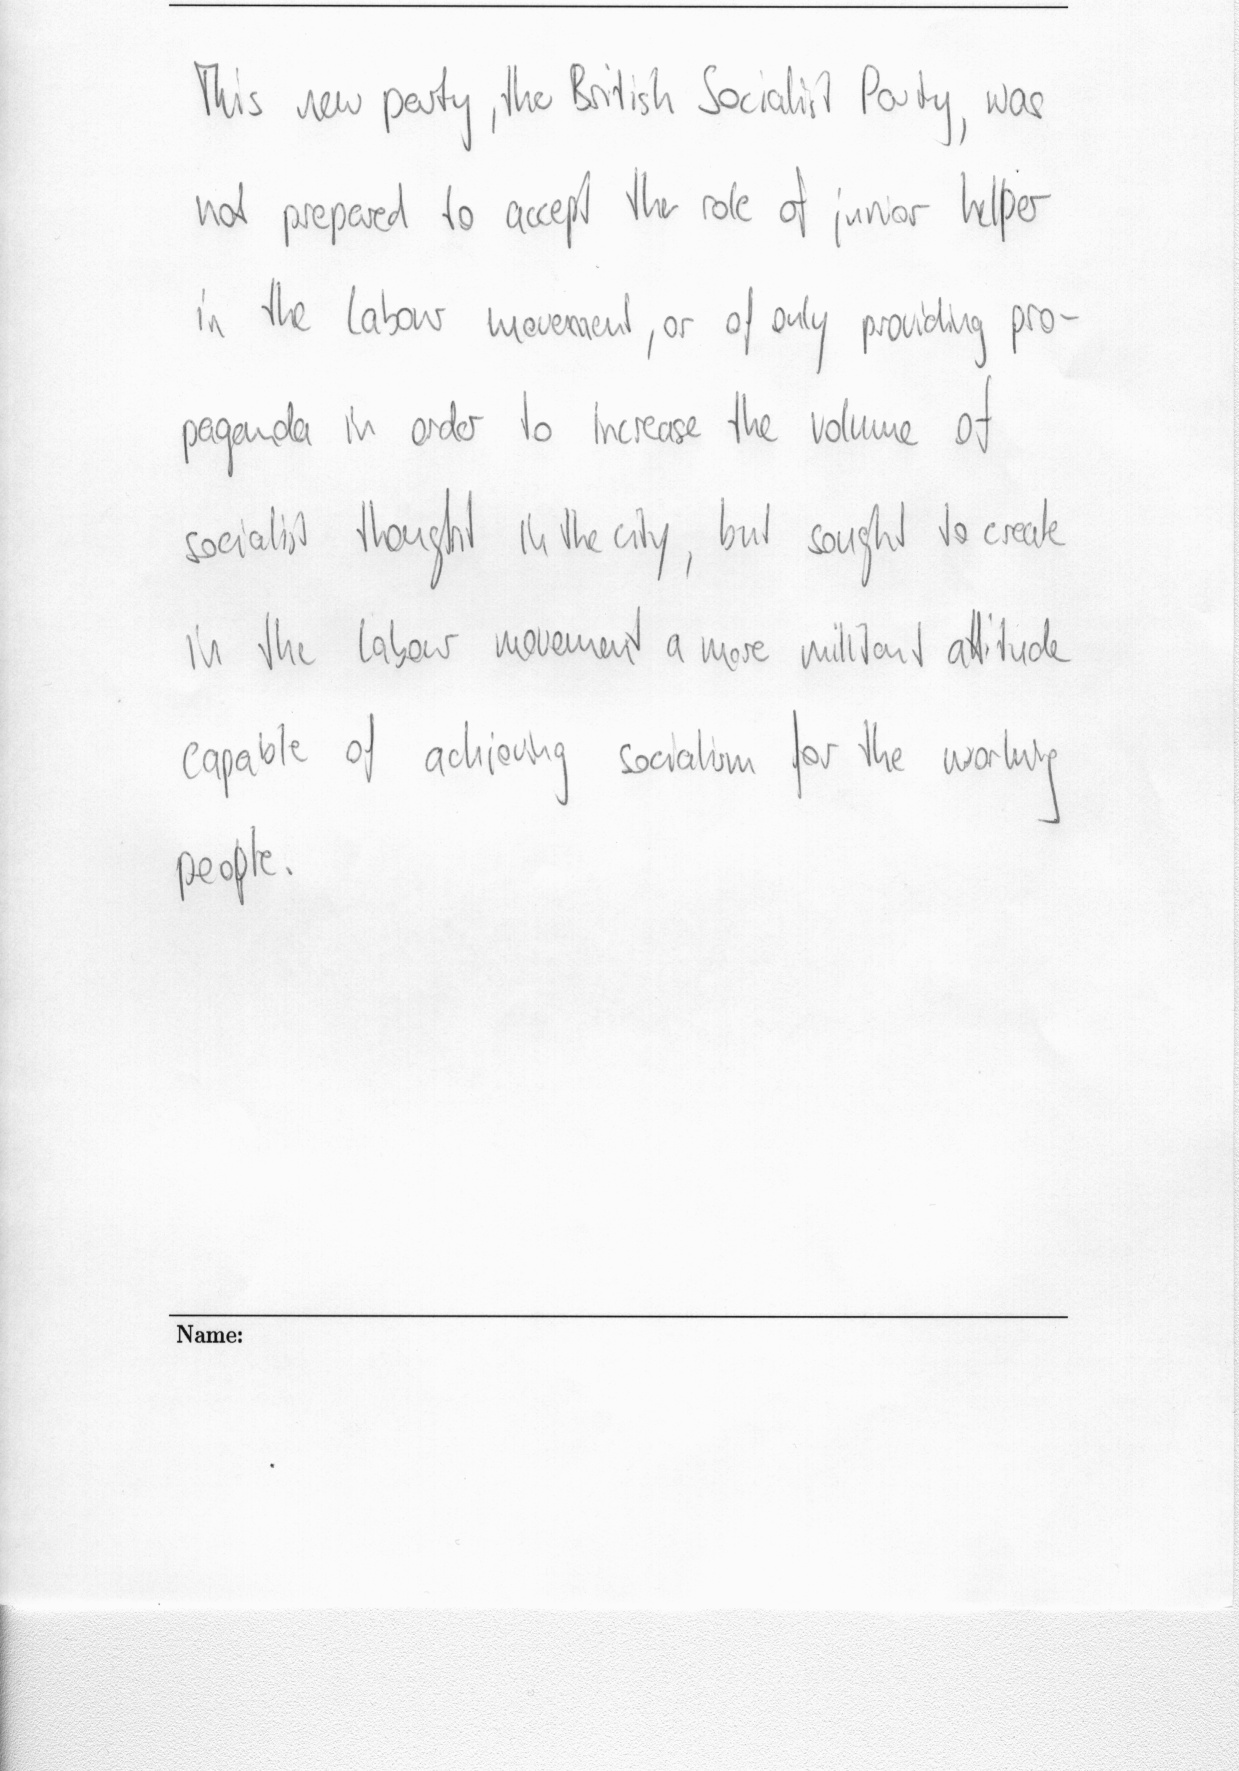 This new party, the British Socialist Party, was
not prepared to accept the role of junior helper
in the Labour movement, or of only providing pro-
paganda in order to increase the volume of
socialist thought in the city, but sought to create
in the Labour movement a more militant attitude
capable of achieving socialism for the working
people.
Name: